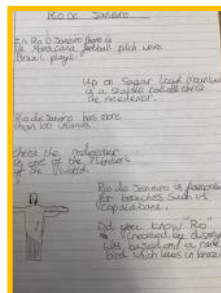 Rio De Janeiro
In Rio D Janeiro there is
the Maracana football pitch were
Brazil plays.
Up on Sugar Loaf mountain
is a statue called christ
the redeemer.
Rio de Janeiro has more
than 100 islands.
christ the redeemer
is one of the 7 Wonders
of the World.
Rio de Janeiro is famous
for beaches such as
Copacabana.
Did you know "Rio"
created by disney
was based on a rare
bird which lives in brazil